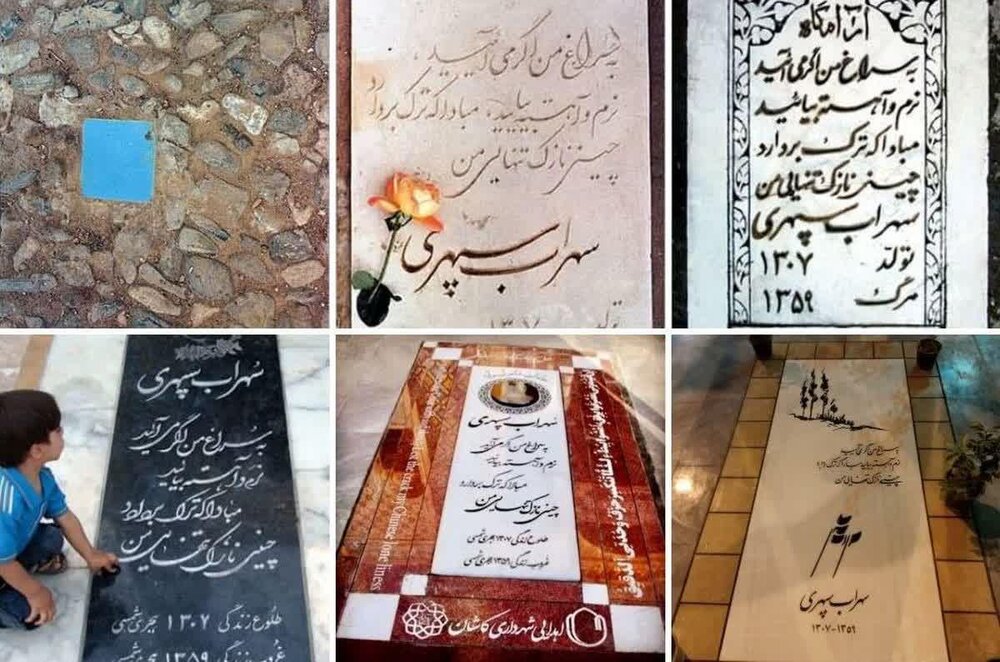 به سراغ من اگر می آیید،
نرم و آهسته بیایید، مبادا که ترک بردارد
چینی نازک تنهایی من
سهراب سپهری
تولد ۱۳۰۷
آرامگاه
به سراغ من اگر می آئید
نرم و آهسته بیائید
مبادا که ترک بردارد
چینی نازک تنهایی من
سهراب سپهری
تولد ۱۳۰۷
مرگ ۱۳۵۹
سهراب سپهری
به سراغ من اگر می آئید
نرم و آهسته بیائید
مبادا که ترک بردارد
چینی نازک تنهایی من
طلوع زندگی ۱۳۰۷ هجری شمسی
غروب زندگی ۱۳۵۹ هجری شمسی
سهراب سپهری
به سراغ من اگر می آئید
نرم و آهسته بیائید
مبادا که ترک بردارد
چینی نازک تنهایی من
طلوع زندگی ۱۳۰۷ هجری شمسی
غروب زندگی ۱۳۵۹ هجری شمسی
اهدایی شهرداری کاشان
به سراغ من اگر می آیید
نرم و آهسته بیایید مبادا که ترک بردارد
چینی نازک تنهایی من
سهراب سپهری
۱۳۰۷-۱۳۵۹